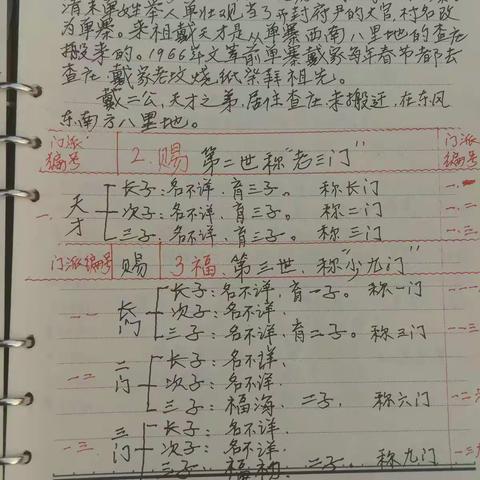 清末单姓举人单壮观当了开封府尹的大官,村名改
为单寨。来祖戴天才是从单寨西南八里地的查庄
搬来的。1966年文革前单寨戴家每年春节都去
查庄戴家老坟烧纸祭拜祖先。
戴二公,天才之弟,居住查庄,未搬迁,在东风
东南方八里地。
门派编号 2.赐 第二世称"老三门" 门派编号
一. 天才 长子:名不详,育三子。 称长门 一.一
次子:名不详,育三子。 称二门 一.二
三子:名不详,育三子。 称三门 一.三
门派编号 赐 3福 第三世,称"少九门"
长门 长子:名不详,育一子。 称一门
次子:名不详.
三子:名不详,育二子。 称三门
一二 二门 长子:名不详.
次子:名不详.
三子:福海. 二子, 称六门
一三. 三门 长子:名不详.
次子:名不详.
三子: 二子. 称九门